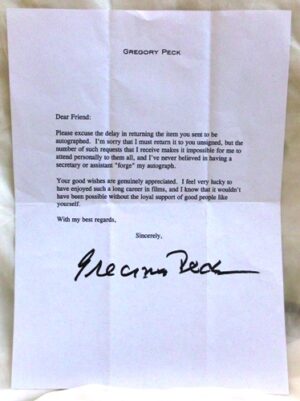 GREGORY PECK
Dear Friend:
Please excuse the delay in returning the item you sent to be
autographed. I'm sorry that I must return it to you unsigned, but the
number of such requests that I receive makes it impossible for me to
attend personally to them all, and I've never believed in having a
secretary or assistant "forge" my autograph.
Your good wishes are genuinely appreciated. I feel very lucky to
have enjoyed such a long career in films, and I know that it wouldn't
have been possible without the loyal support of good people like
yourself.
With my best regards,
Sincerely,
Gregory Peck